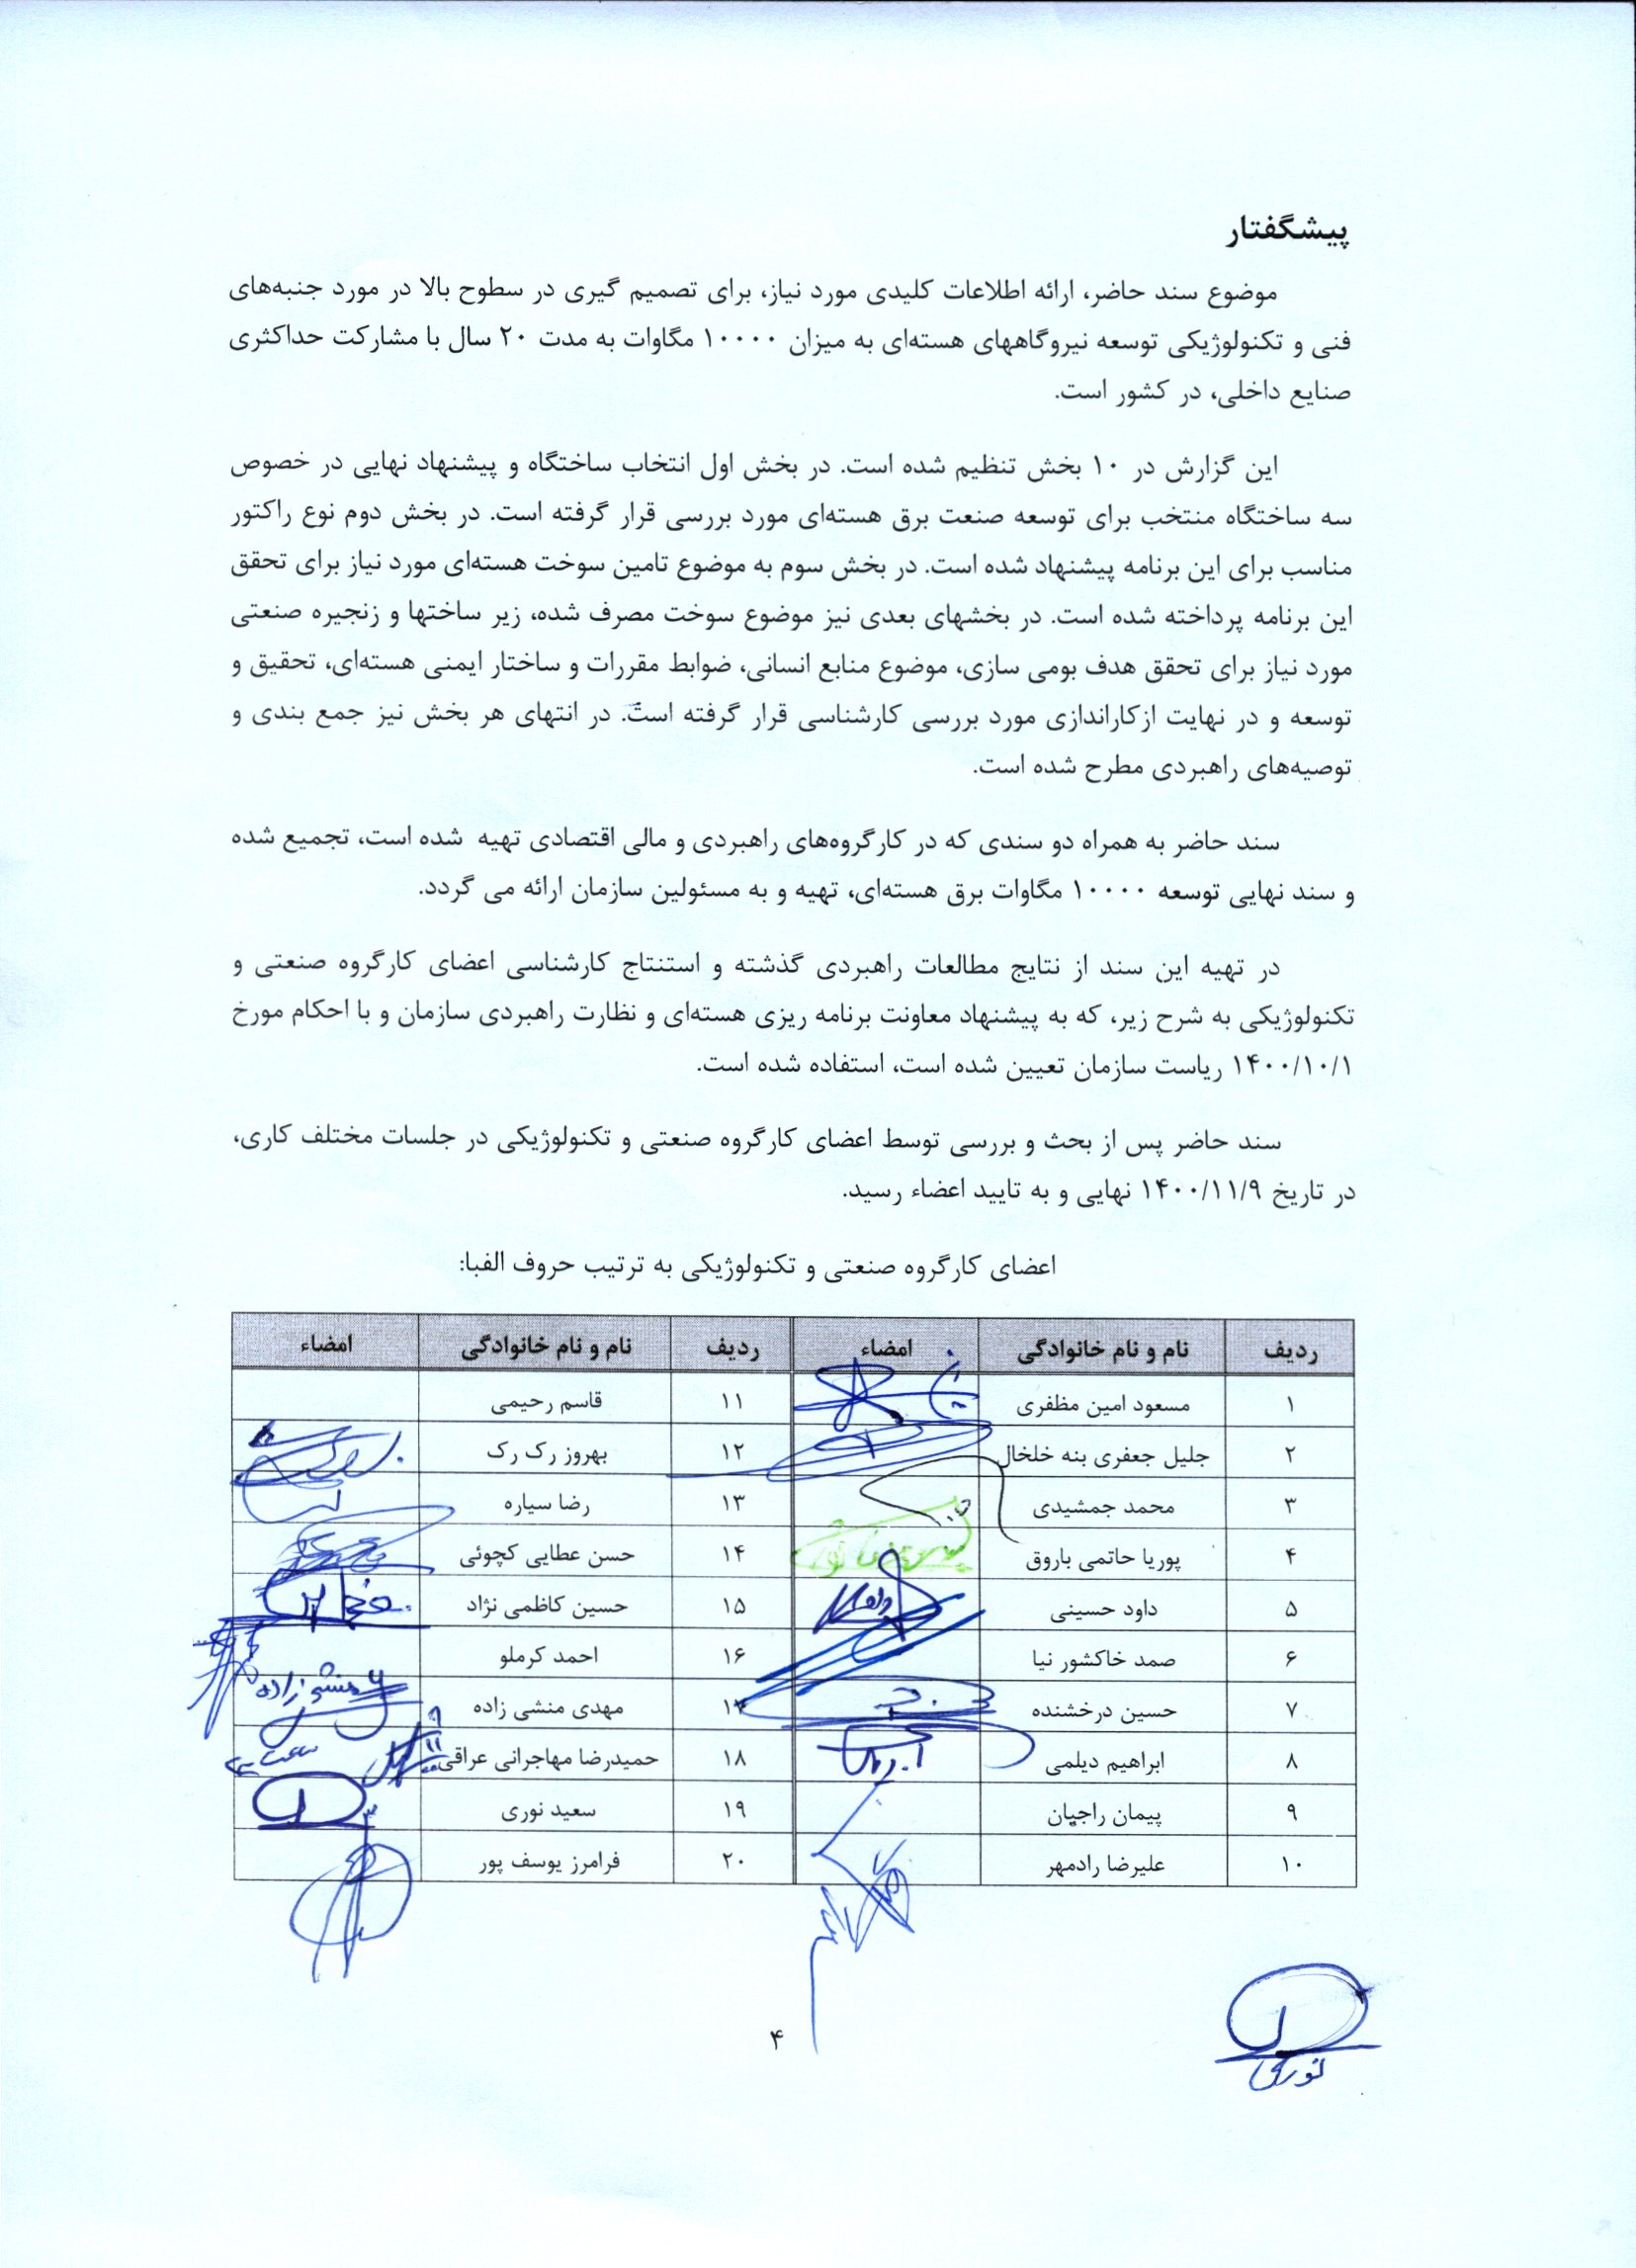 پیشگفتار
موضوع سند حاضر، ارائه اطلاعات کلیدی مورد نیاز، برای تصمیم گیری در سطوح بالا در مورد جنبه‌های
فنی و تکنولوژیکی توسعه نیروگاههای هسته‌ای به میزان ۱۰۰۰۰ مگاوات به مدت ۲۰ سال با مشارکت حداکثری
صنایع داخلی، در کشور است.
این گزارش در ۱۰ بخش تنظیم شده است. در بخش اول انتخاب ساختگاه و پیشنهاد نهایی در خصوص
سه ساختگاه منتخب برای توسعه صنعت برق هسته‌ای مورد بررسی قرار گرفته است. در بخش دوم نوع راکتور
مناسب برای این برنامه پیشنهاد شده است. در بخش سوم به موضوع تامین سوخت هسته‌ای مورد نیاز برای تحقق
این برنامه پرداخته شده است. در بخشهای بعدی نیز موضوع سوخت مصرف شده، زیر ساختها و زنجیره صنعتی
مورد نیاز برای تحقق هدف بومی سازی، موضوع منابع انسانی، ضوابط مقررات و ساختار ایمنی هسته‌ای، تحقیق و
توسعه و در نهایت ازکاراندازی مورد بررسی کارشناسی قرار گرفته است. در انتهای هر بخش نیز جمع بندی و
توصیه‌های راهبردی مطرح شده است.
سند حاضر به همراه دو سندی که در کارگروه‌های راهبردی و مالی اقتصادی تهیه شده است، تجمیع شده
و سند نهایی توسعه ۱۰۰۰۰ مگاوات برق هسته‌ای، تهیه و به مسئولین سازمان ارائه می گردد.
در تهیه این سند از نتایج مطالعات راهبردی گذشته و استنتاج کارشناسی اعضای کارگروه صنعتی و
تکنولوژیکی به شرح زیر، که به پیشنهاد معاونت برنامه ریزی هسته‌ای و نظارت راهبردی سازمان و با احکام مورخ
۱۴۰۰/۱۰/۱ ریاست سازمان تعیین شده است، استفاده شده است.
سند حاضر پس از بحث و بررسی توسط اعضای کارگروه صنعتی و تکنولوژیکی در جلسات مختلف کاری،
در تاریخ ۱۴۰۰/۱۱/۹ نهایی و به تایید اعضاء رسید.
اعضای کارگروه صنعتی و تکنولوژیکی به ترتیب حروف الفبا:
ردیف نام و نام خانوادگی امضاء ردیف نام و نام خانوادگی امضاء
۱ مسعود امین مظفری ۱۱ قاسم رحیمی
۲ جلیل جعفری بنه خلخال ۱۲ بهروز رک رک
۳ محمد جمشیدی ۱۳ رضا سیاره
۴ پوریا حاتمی باروق ۱۴ حسن عطایی کچوئی
۵ داود حسینی ۱۵ حسین کاظمی نژاد
۶ صمد خاکشور نیا ۱۶ احمد کرملو
۷ حسین درخشنده ۱۷ مهدی منشی زاده منشی زاده
۸ ابراهیم دیلمی ۱۸ حمیدرضا مهاجرانی عراقی
۹ پیمان راجیان ۱۹ سعید نوری
۱۰ علیرضا رادمهر ۲۰ فرامرز یوسف پور
۴
نوری